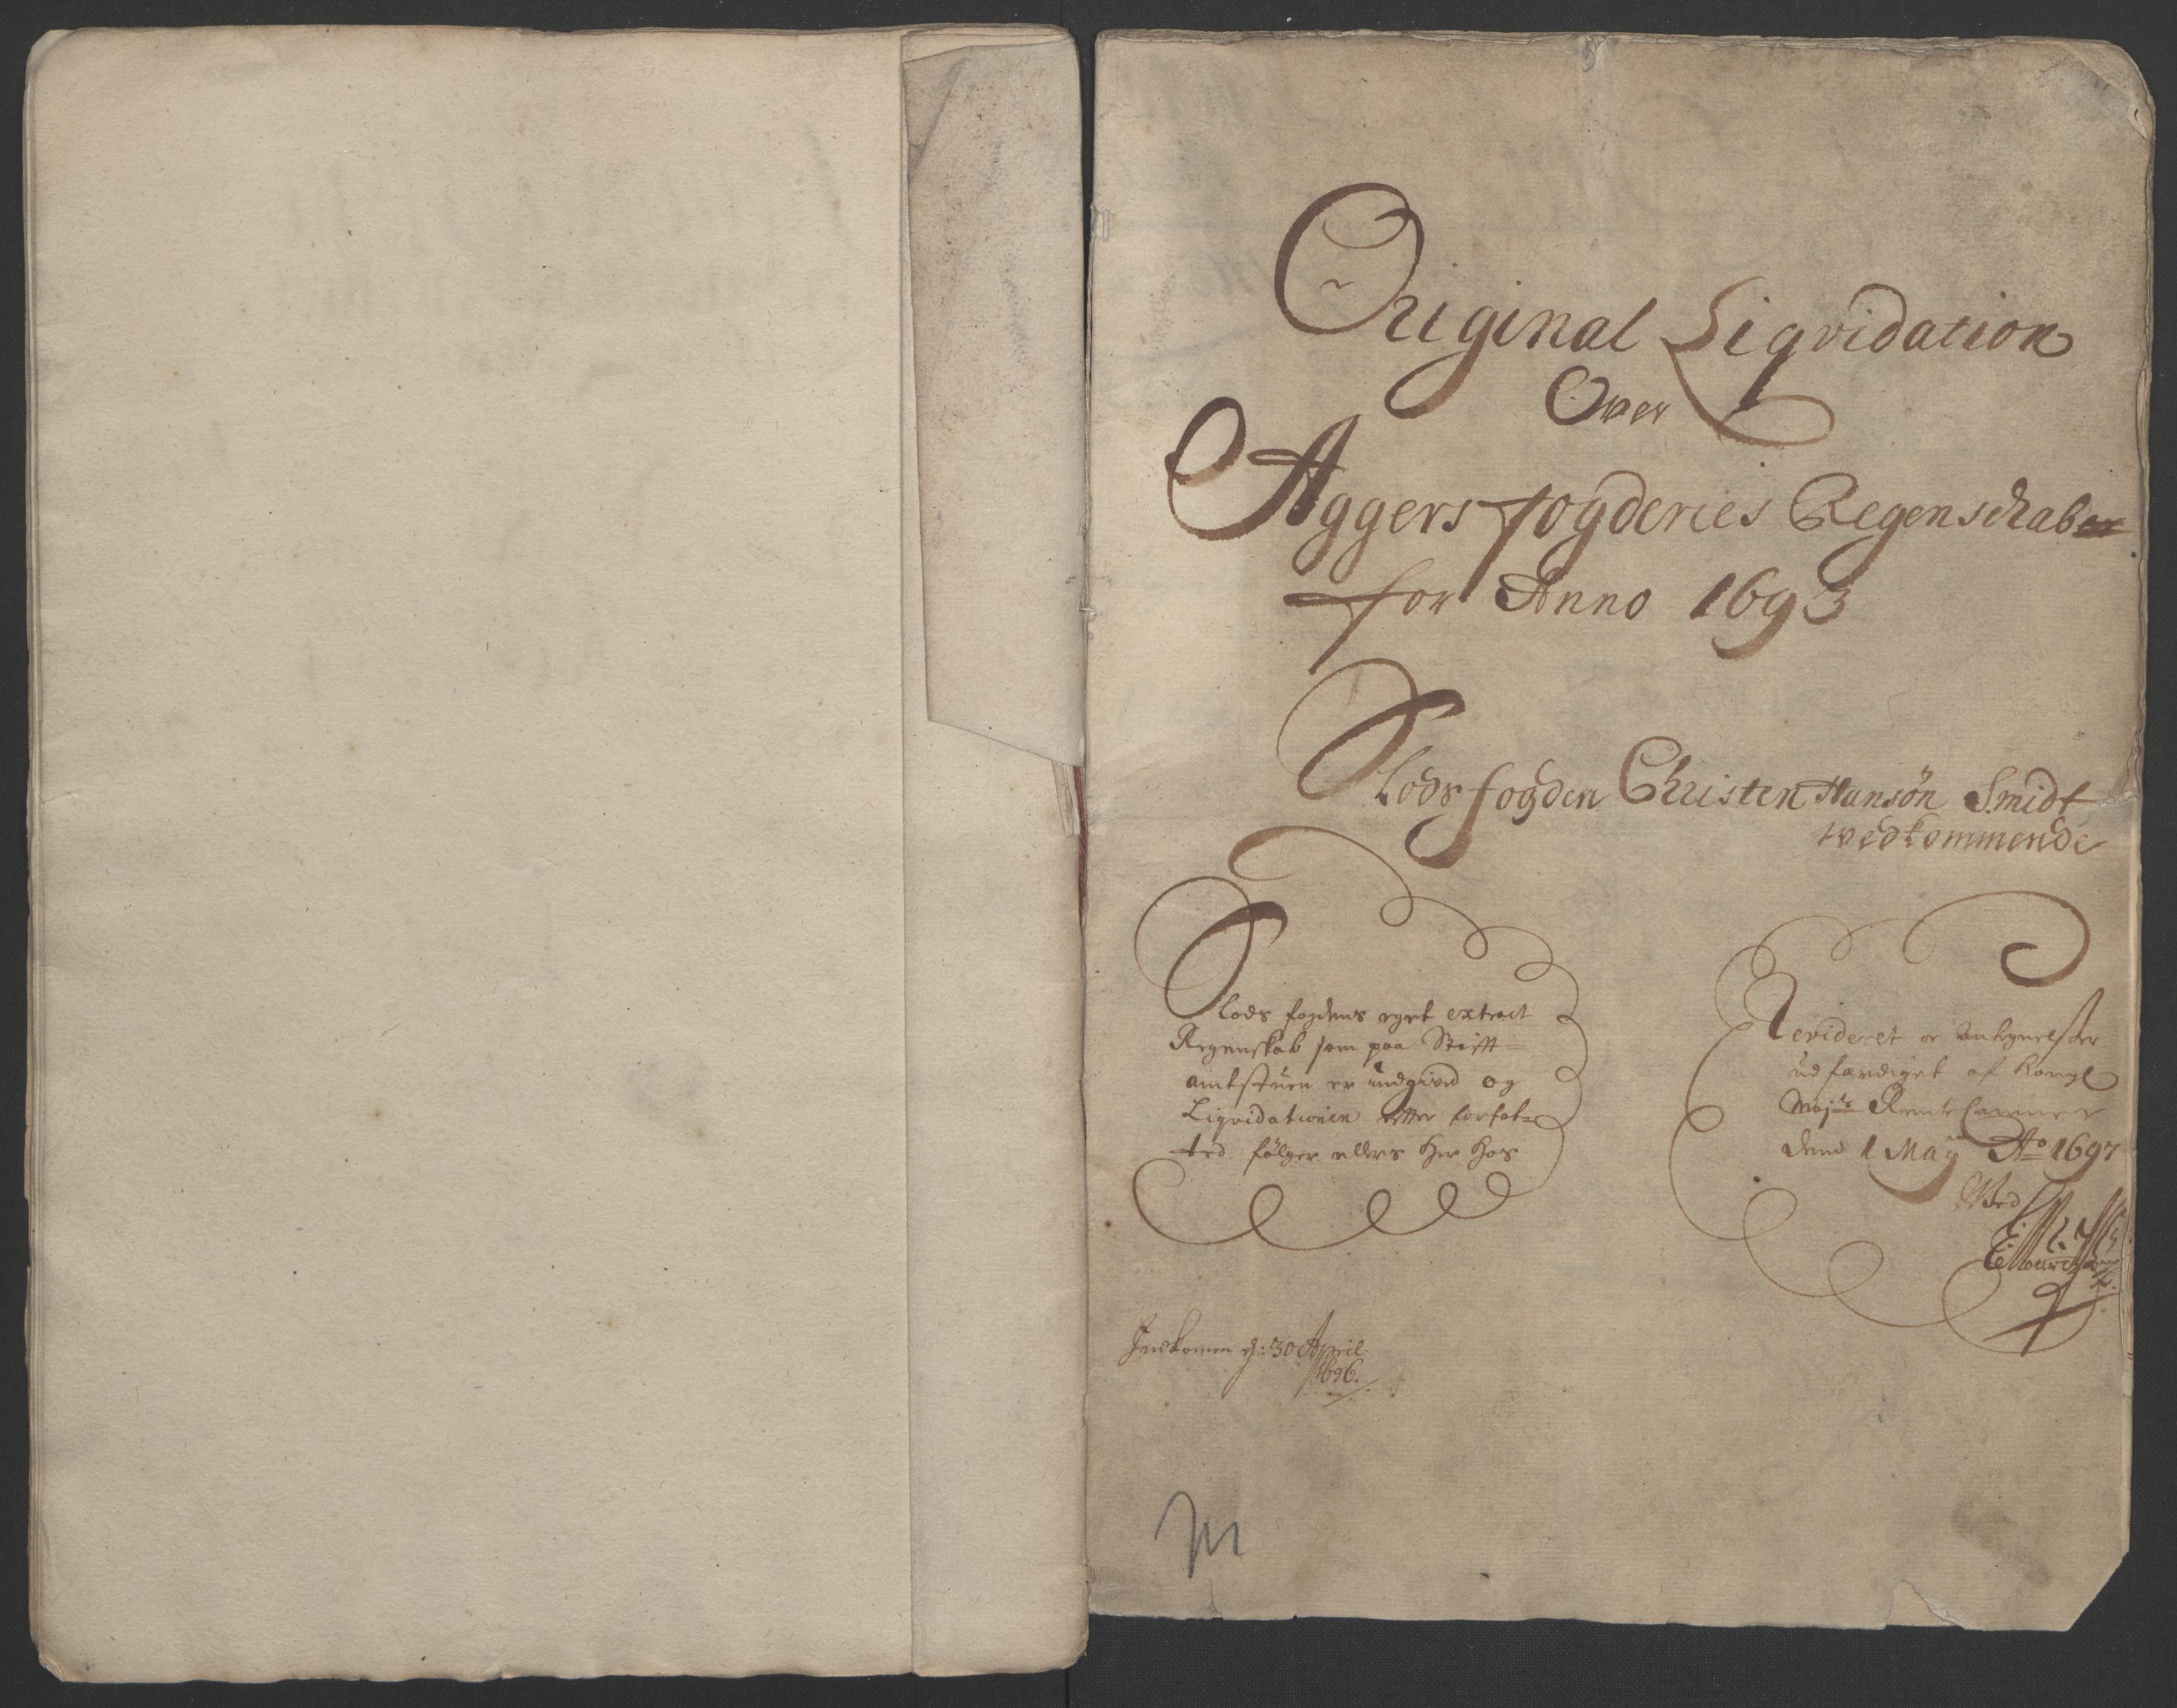 Original Liqvidation
Over
Aggers fogderies Regenschaber
for Anno 1693
Slods fogden Christen Hansøn Smidt
vedkommende
Slods fogdens eget extract
Regenskab som paa Stifft=
amtstuen er indgived og
Liqvidationen efter forfat=
ted følger ellers her hos
Revideret oc Antegnelser
udfærdiget af Kongl
Majts Rente Cammer
denn 1 Maij Ao 1697
Ved
Indkomen d: 30 April
1696.